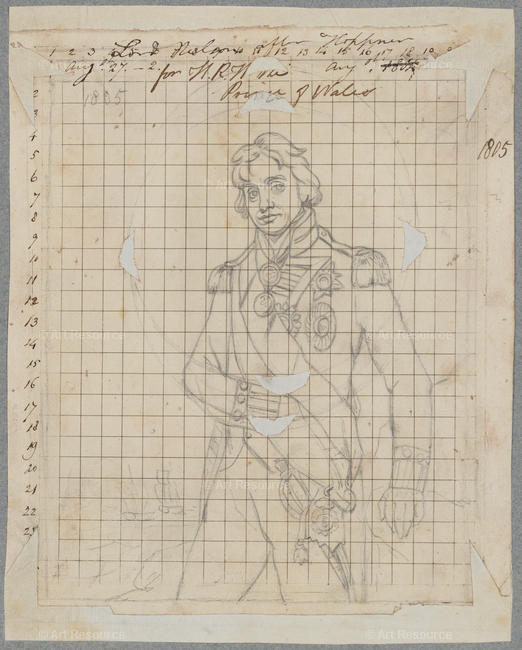 Lord Nelson after Hoppner
1 2 3 11 12 13 14 15 16 17 18 19
Aug 27 2 for H.R.H. the Aug 1805
Prince of Wales
1805
1805
2
3
4
5
6
7
8
9
10
11
12
13
14
15
16
17
18
19
20
21
22
23
© Art Resource
© Art Resource